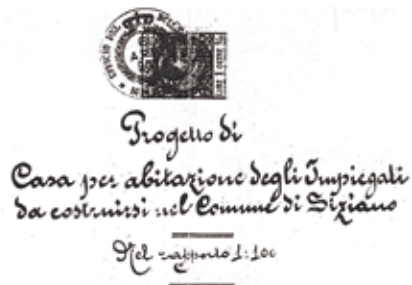 Progetto di
Casa per abitazione degli Impiegati
da costruirsi nel Comune di Siziano
Nel rapporto 1:100